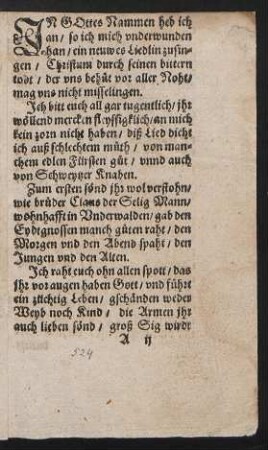 IN GOttes Nammen heb ich
an / so ich mich vnderwunden
han / ein neuwes Liedlin zusin-
gen / Christum durch seinen bittern
todt / der vns behüt vor aller Noht /
mag vns nicht misselingen.
Ich bitt euch all gar tugentlich / jhr
wöllend mercken fleyssigklich / an mich
kein zorn nicht haben / diß Lied dicht
ich auß schlechtem můth / von man-
chem edlen Fürsten gůt / vnnd auch
von Schweytzer Knaben.
Zum ersten sönd jhr wol verstohn /
wie brüder Claus der Selig Mann /
wohnhafft in Vnderwalden / gab den
Eydtgnossen manch gůten raht / den
Morgen vnd den Abend spaht / den
Jungen vnd den Alten.
Ich raht euch ohn allen spott / das
jhr vor augen haben Gott / vnd führt
ein züchtig Leben / gschänden weder
Weyb noch Kind / die Armen jhr
auch lieben sönd / groß Sig wirdt
A ij
524